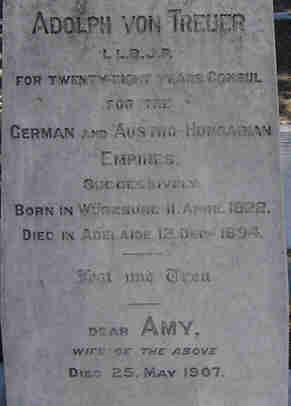 ADOLPH VON TREUER
L L.B.J.P.
FOR TWENTY EIGHT YEARS CONSUL
FOR THE
GERMAN AND AUSTRO-HUNGARIAN
EMPIRES.
SUCCESSIVELY.
BORN IN WÜRZBURG 11. APRIL 1822.
DIED IN ADELAIDE 12. DEC. 1894.
Fest und Treu
DEAR AMY,
WIFE OF THE ABOVE
DIED 25. MAY 1907.